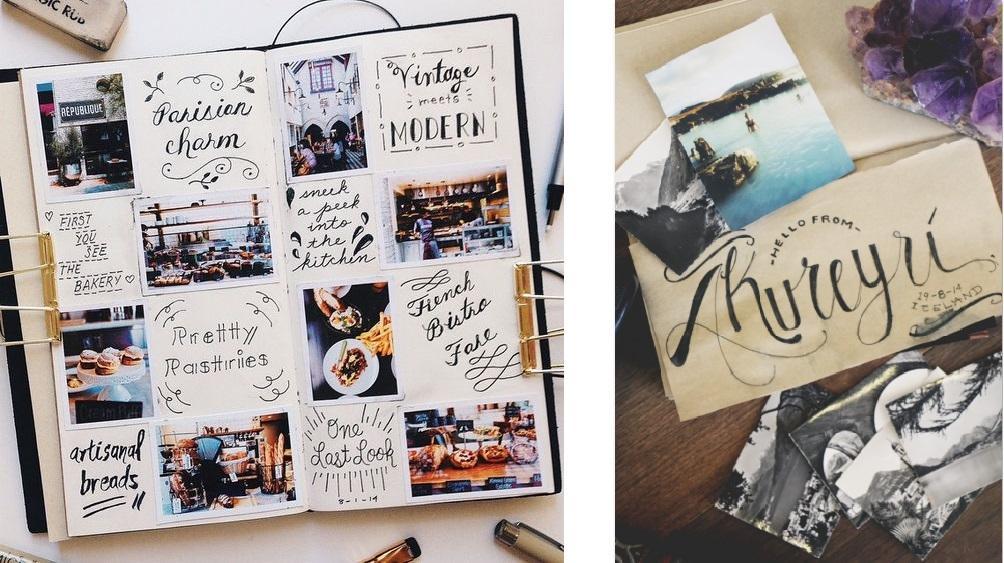 MAGIC RUB
RÉPUBLIQUE
Parisian
charm
FIRST
YOU
SEE
THE
BAKERY
Pretty
Pastries
Cream Puff
artisanal
breads
Vintage
meets
MODERN
sneek
a peek
into
the
kitchen
French
Bistro
Fare
One
Last Look
8-1-14
-HELLO FROM-
Akureyri
19-8-14
ICELAND